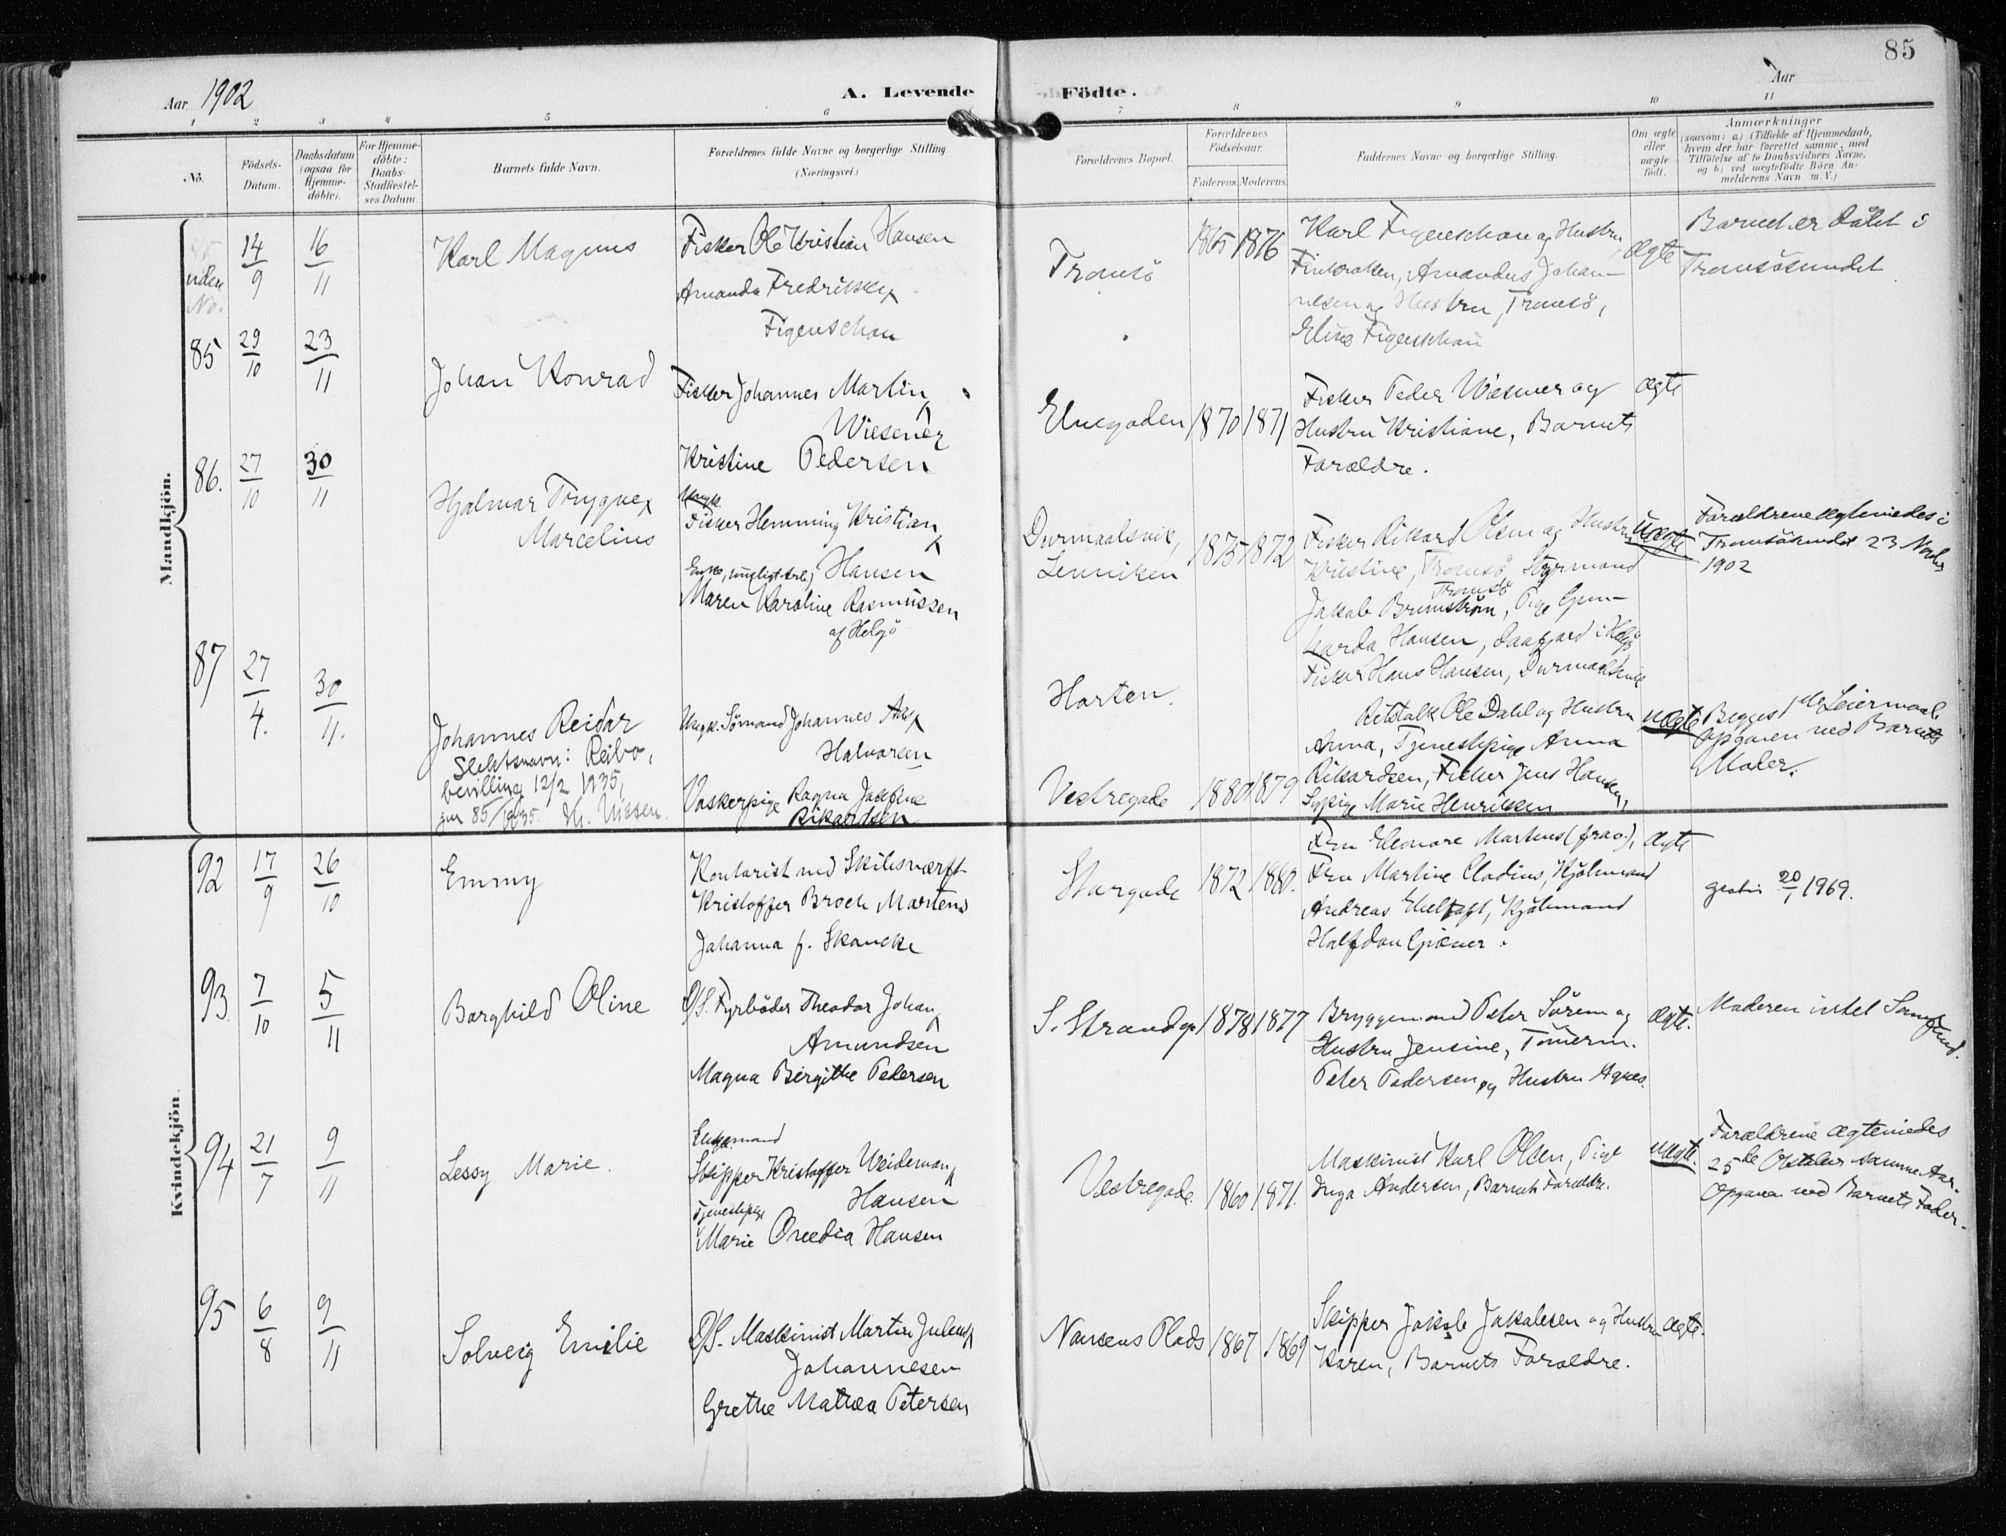 85
Aar 1902
A. Levende Födte.
Aar
1 2 3 4 5 6 7 8 9 10 11
No.
Födsels-Datum.
Daabsdatum (ogsaa for Hjemme-döbte).
For Hjemme-döbte: Daabs-Stadfæstel-ses Datum.
Barnets fulde Navn.
Forældrenes fulde Navne og borgerlige Stilling.
(Næringsvei.)
Forældrenes Bopæl.
Forældrenes Födselsaar.
Faderens. Moderens.
Faddernes Navne og borgerlige Stilling.
Om ægte eller uægte födt.
Anmærkninger
(saasom: a) i Tilfælde af Hjemmedaab,
hvem der har forrettet samme, med
Tilföielse af to Daabsvidners Navne,
og b) ved uægtefödte Börn An-
melderens Navn m. V.)
Mandkjön.
uden No.
14/9 16/11
Karl Magnus
Fisker Ole Kristian Hansen
Amanda Fredrikke
Figenschau
Tromsö
1865 1876
Karl Figenschau og Hustru,
Finkroken, Amandus Johan-
nesen og Hustru, Tromsö,
Elise Figenschau
Ægte
Barnet er födt i
Tromsösundet
85
29/10 23/11
Johan Konrad
Fisker Johannes Martin
Wiesener
Kristine Pedersen
Elvegaden
1870 1871
Fisker Peder Wiesener og
Hustru Kristiane, Barnets
Forældre.
Ægte
86.
27/10 30/11
Hjalmar Trygve
Marcelius
Ungk.
Fisker Hemming Kristian
Hansen
Maren Karoline Rasmussen
af Helgö
1875 1872
Fisker Rikard Olsen og Hustru
Kristine, Tromsö, Styrmand
Tromsö
Jakob Brunström, Pige Gun-
harda Hansen,
Fisker Hans Hansen,
Uægte
Forældrene ægteviedes i
Tromsösundet 23 Novbr
1902
87
27/4. 30/11.
Johannes Reidar
Slektsnavn: Reibo,
bevilling 12/2 1935,
jnr 85/1935.
Ungk. Sömand Johannes Aas
Halvorsen
Vaskerpige Ragna Josefine
Rikardsen
Horten.
Vestregade
1880 1879
Ole Dahl og Hustru
Anna, Tjenestepige Anna
Rikardsen, Fisker Jens Hansen,
Sypige Marie Henriksen
uægte
Begges 1ste Leiermaal
Opgaven ved Barnets
Moder.
Kvindekjön.
92
17/9 26/10
Emmy
Kontorist ved Skibsværft
Kristoffer Broch Martens
Johanna f. Skancke
Storgade
1872 1880.
Fru Eleonore Martens (frav.),
Fru Martine Clodius, Kjöbmand
Andreas Ebeltoft, Kjöbmand
Halfdan Gjæver.
Ægte
gratis 20/1 1969.
93.
7/10 5/11
Borghild Oline
D/S. Fyrböder Theodor Johan
Amundsen
Magna Birgithe Pedersen
S. Strandg.
1878 1877
Bryggemand Peter Sörem og
Hustru Jensine, Tömerm.
Peter Pedersen og Hustru Agnes.
Ægte.
Moderen intet Samfund.
94
21/7 9/11
Lessy Marie.
Enkemand
Skipper Kristoffer Weideman
Hansen
Tjenestepige
Marie Oveedia Hansen
Vestregade.
1860 1871.
Maskinist Karl Olsen, Pige
Inga Andersen, Barnets Forældre.
uægte.
Forældrene ægteviedes
25de Oktober samme Aar.
Opgaven ved Barnets Fader.
95
6/8 9/11
Solveig Emilie
D/S. Maskinist Martin Julius
Johannesen
Grethe Mathea Petersen
Nansens Plads
1867 1869
Skipper Jakob Jakobsen og Hustru
Karen, Barnets Forældre.
Ægte.